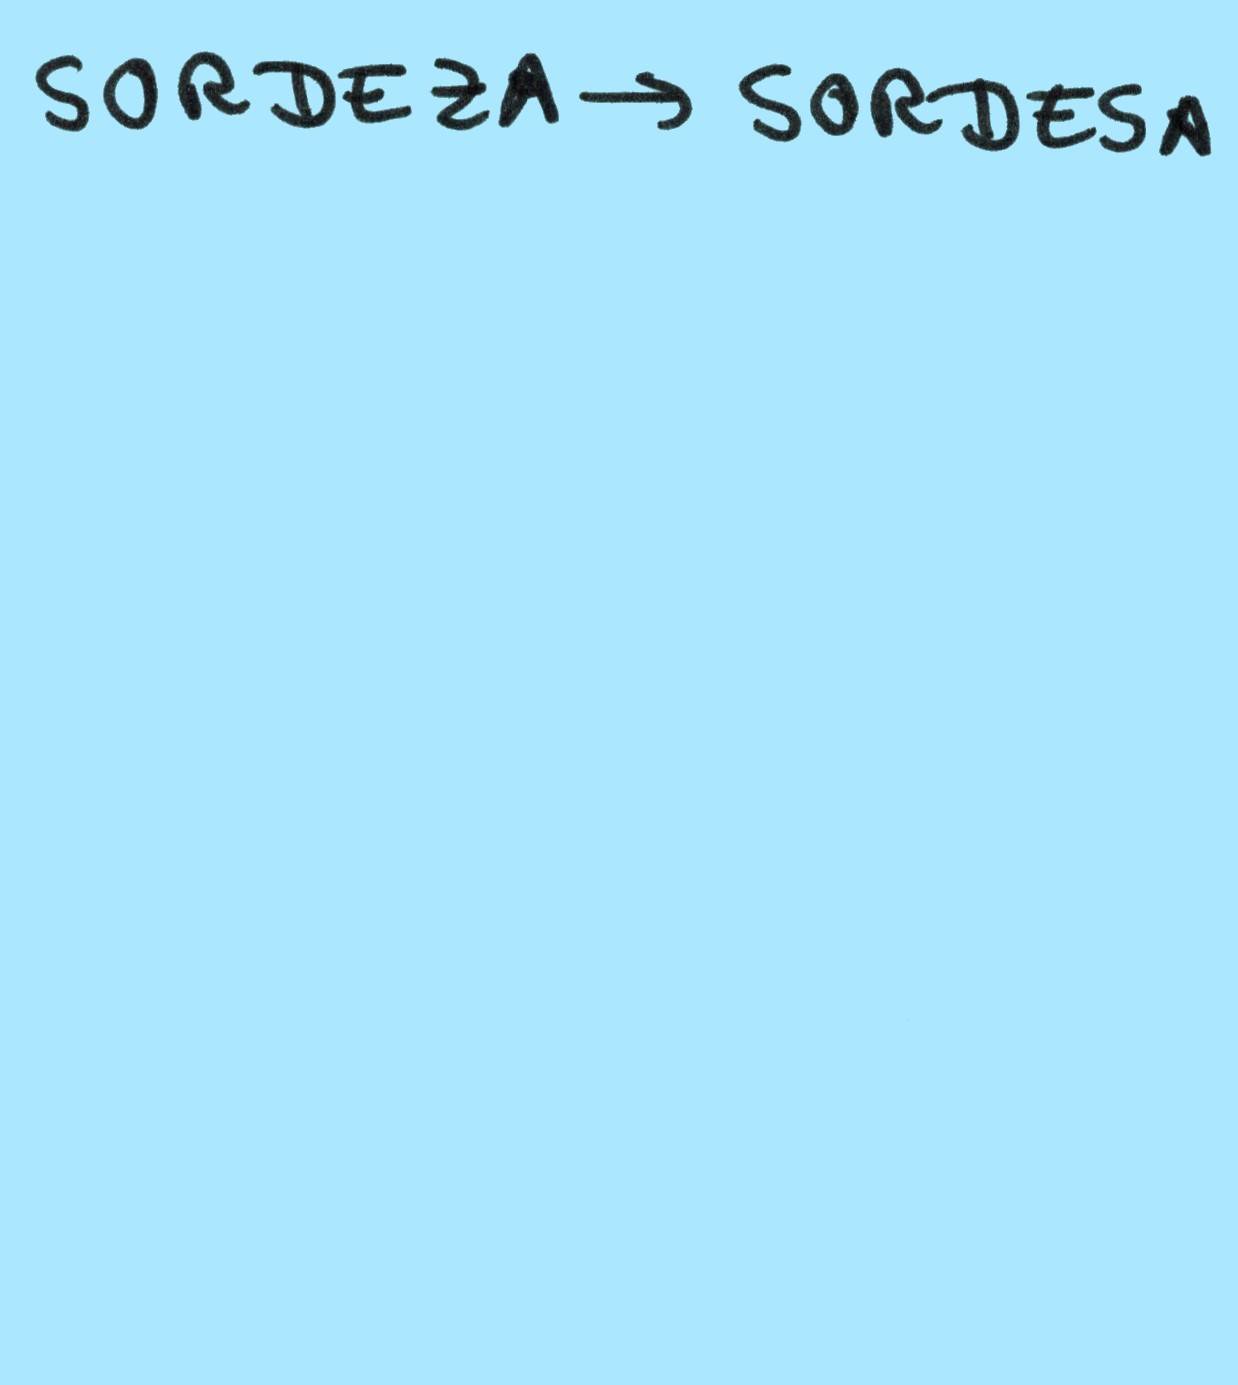 SORDEZA → SORDESA